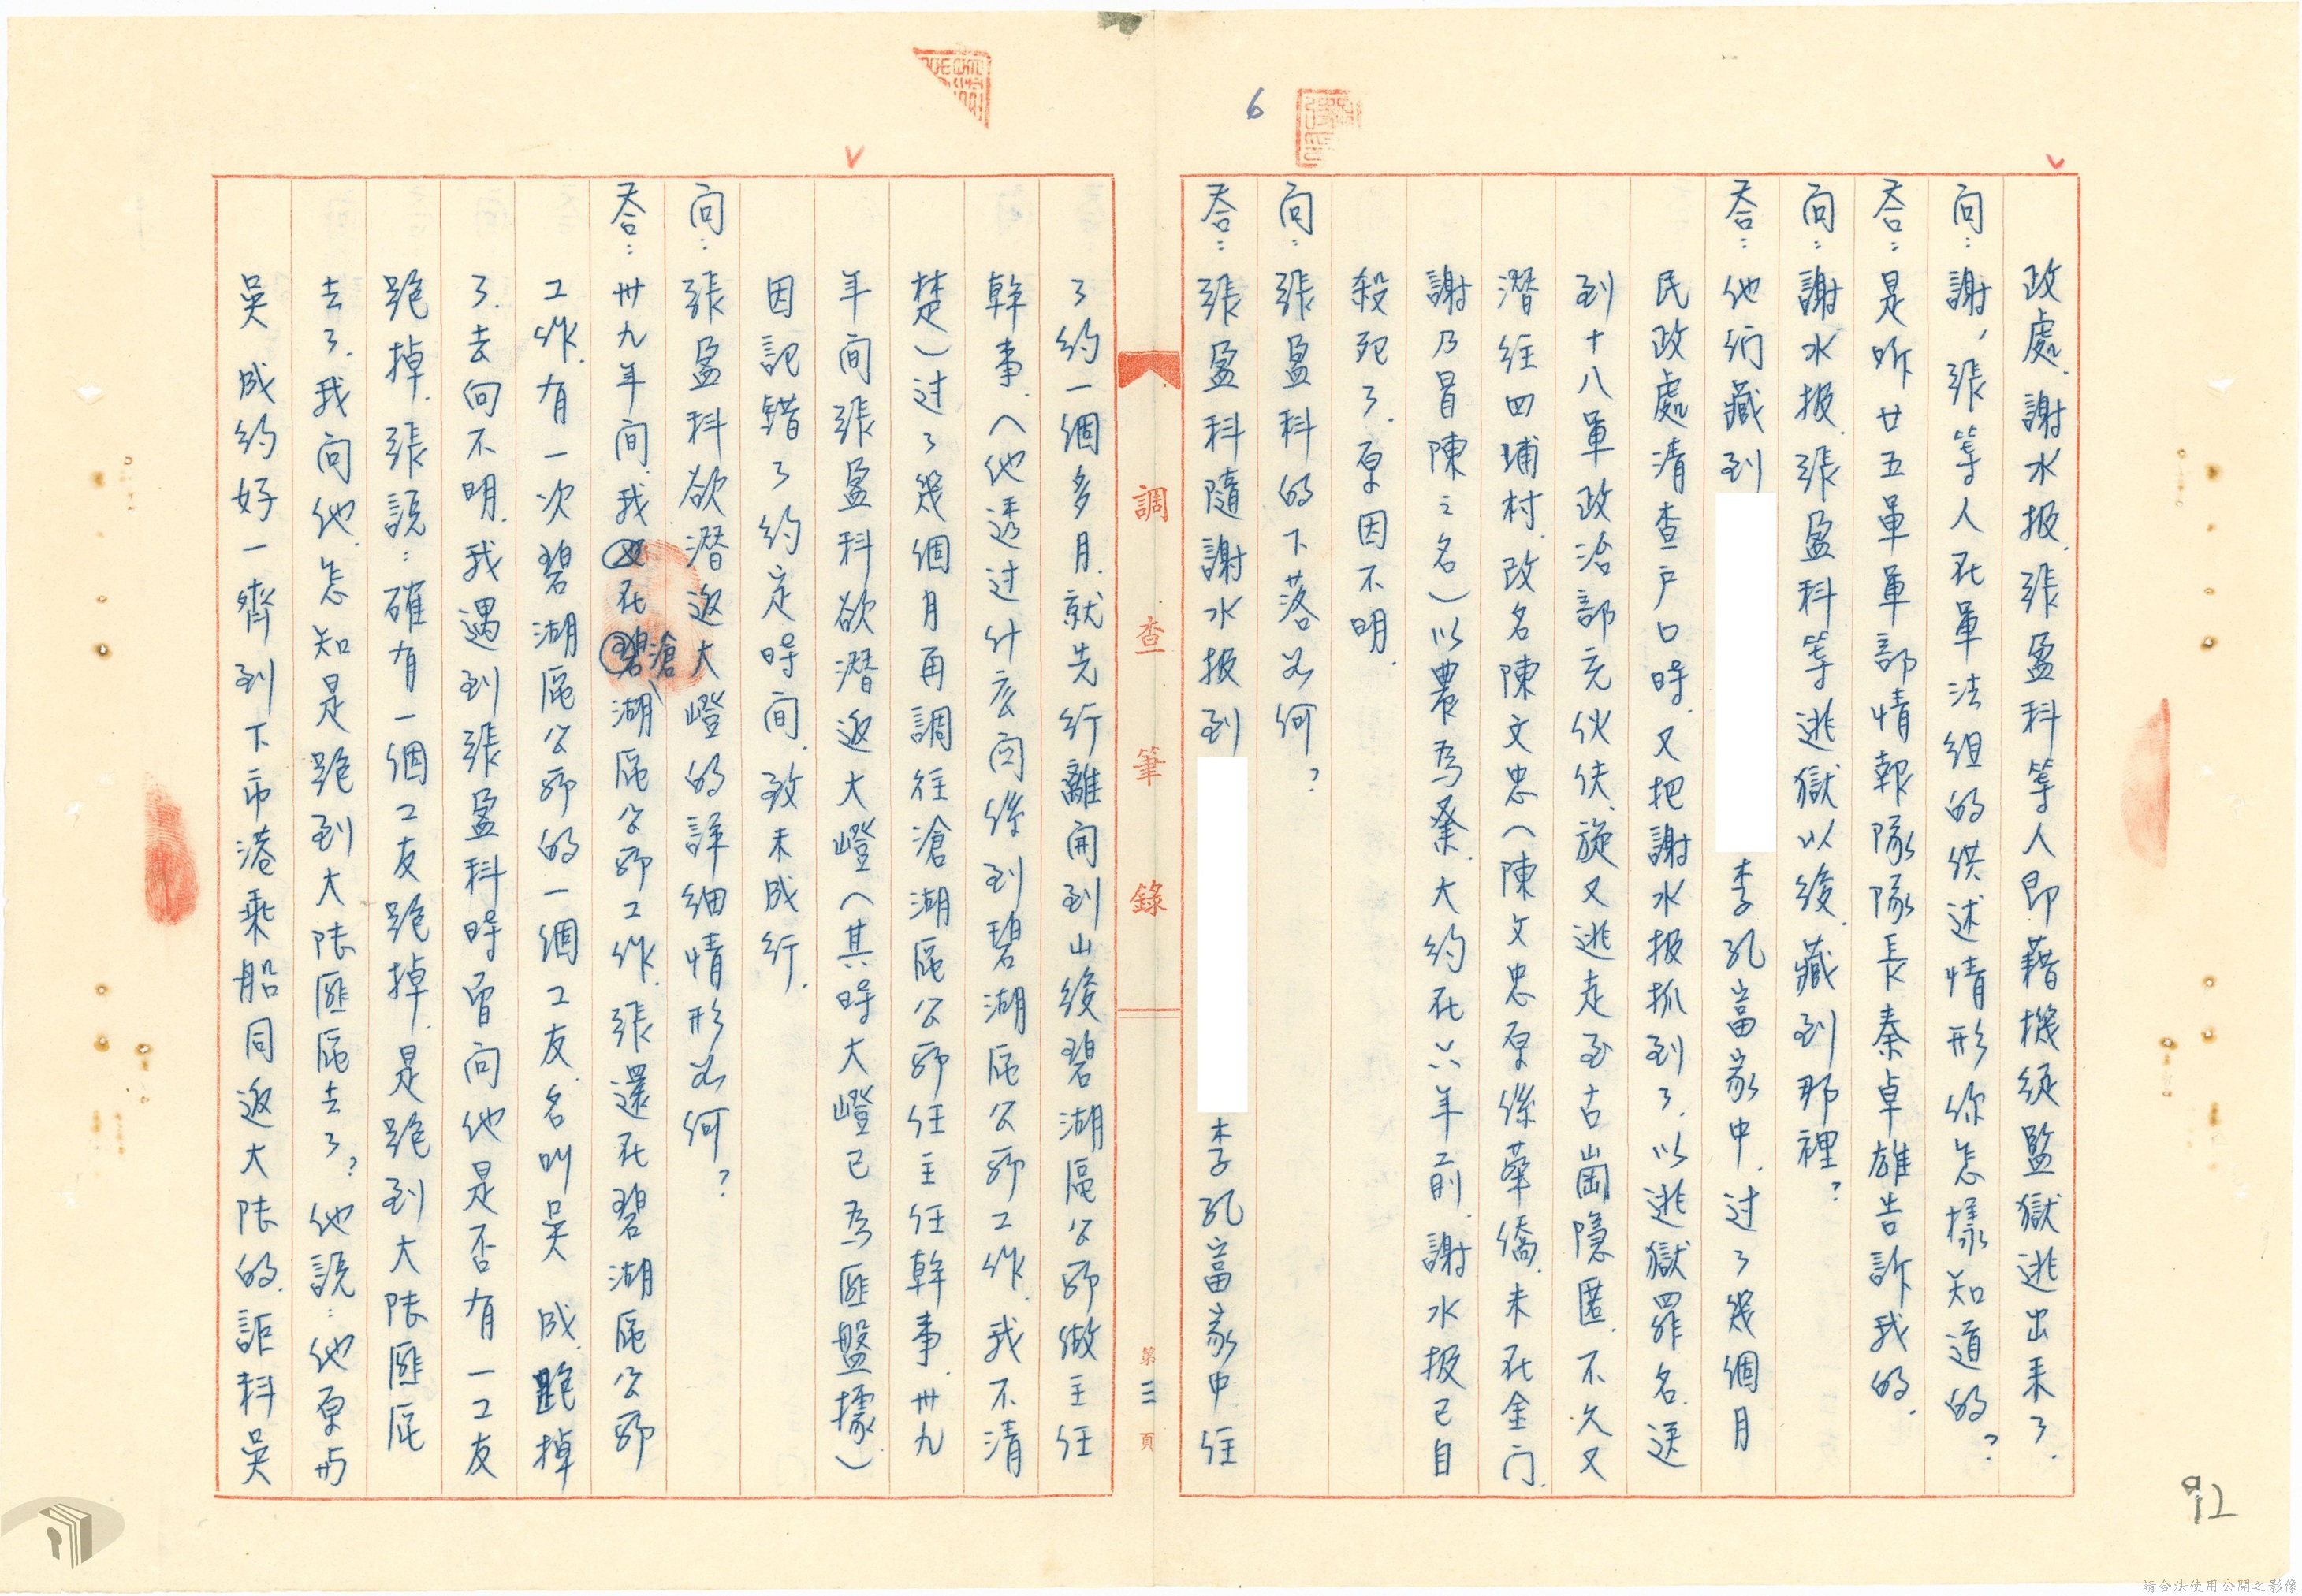 6
政處.謝水报.張盈科等人即藉機後監獄逃出来了.
问:謝,張等人在軍法组的供述情形你怎樣知道的?
荅:是昨廿五軍軍部情報隊隊長秦卓雄告訴我的.
问:謝水报.張盈科等逃獄以後.藏到那裡?
荅:他们藏到 李孔富家中.过了幾個月
民政處清查户口時.又把謝水报抓到了.以逃獄罪名.送
到十八軍政治部充伙伕.旋又逃走至古崗隐匿.不久又
潛往四埔村.改名陳文忠(陳文忠原係華僑.未在金门.
謝乃冒陳之名)以農為業.大约在六年前.謝水报已自
殺死了.原因不明.
问:張盈科的下落如何?
荅:張盈科隨謝水报到 李孔富家中住
調查筆錄
第三頁
了约一個多月.就先行離開到山後碧湖區公所做主任
幹事.(他透过什么向係到碧湖區公所工作.我不清
楚)过了幾個月再調往滄湖區公所任主任幹事.卅九
年间張盈科欲潛返大嶝(其時大嶝已為匪盤據)
因記錯了约定時间.致未成行.
问:張盈科欲潛返大嶝的詳细情形如何?
荅:卅九年间.我在滄湖區公所工作.張還在碧湖區公所
工作.有一次碧湖區公所的一個工友.名叫吳 成.跑掉
了.去向不明.我遇到張盈科時曾向他是否有一工友
跑掉.張說:確有一個工友跑掉.是跑到大陆匪區
去了.我向他.怎知是跑到大陆匪區去了?他說:他原与
吳 成约好一齊到下市港乘船同返大陆的.詎料吳
92
請合法使用公開之影像